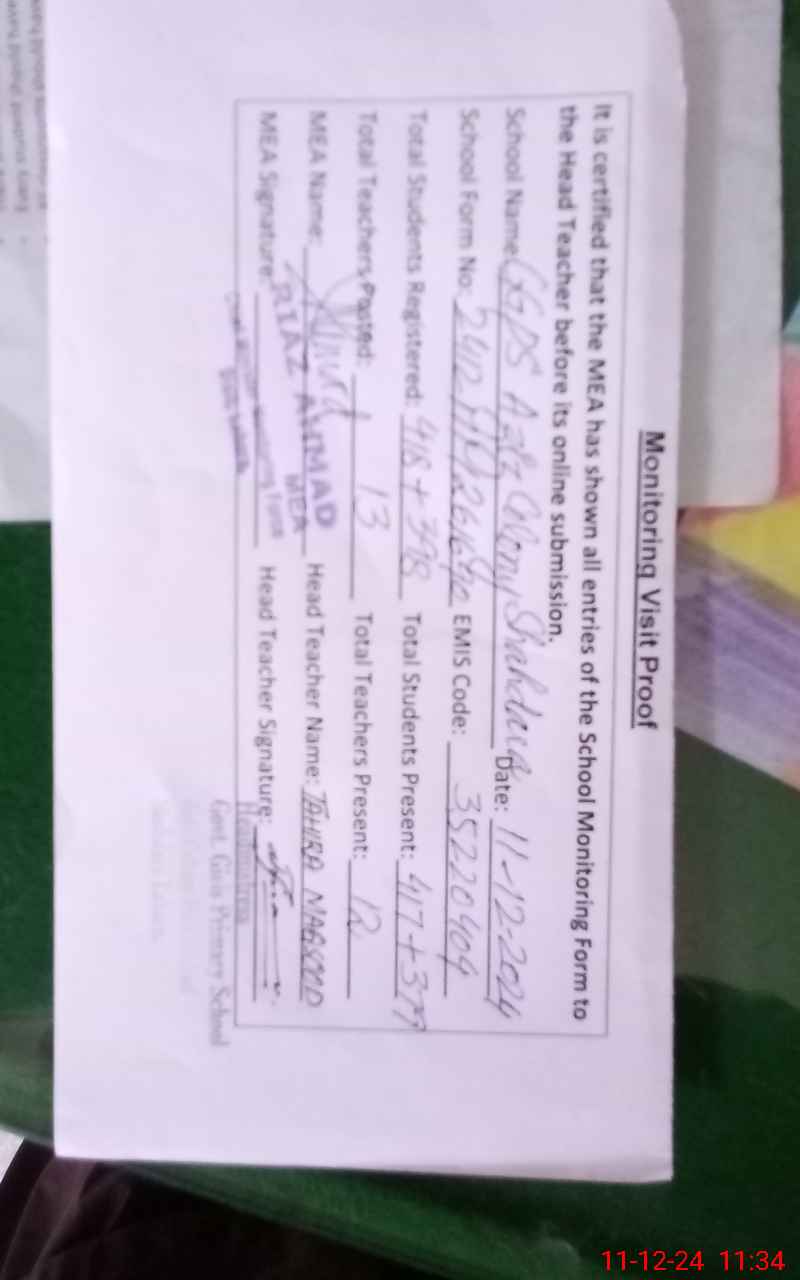 Monitoring Visit Proof
It is certified that the MEA has shown all entries of the School Monitoring Form to
the Head Teacher before its online submission.
School Name: GGPS Aziz Colony Shahdara Date: 11-12-2024
School Form No: 2412 EMIS Code: 35220409
Total Students Registered: 418 + 398 Total Students Present: 417 + 377
Total Teachers Posted: 13 Total Teachers Present: 12
MEA Name: RIAZ AHMAD MEA Head Teacher Name: TAHIRA MAQSOOD
MEA Signature: Head Teacher Signature:
Headmistress
Govt. Girls Primary School
11-12-24 11:34